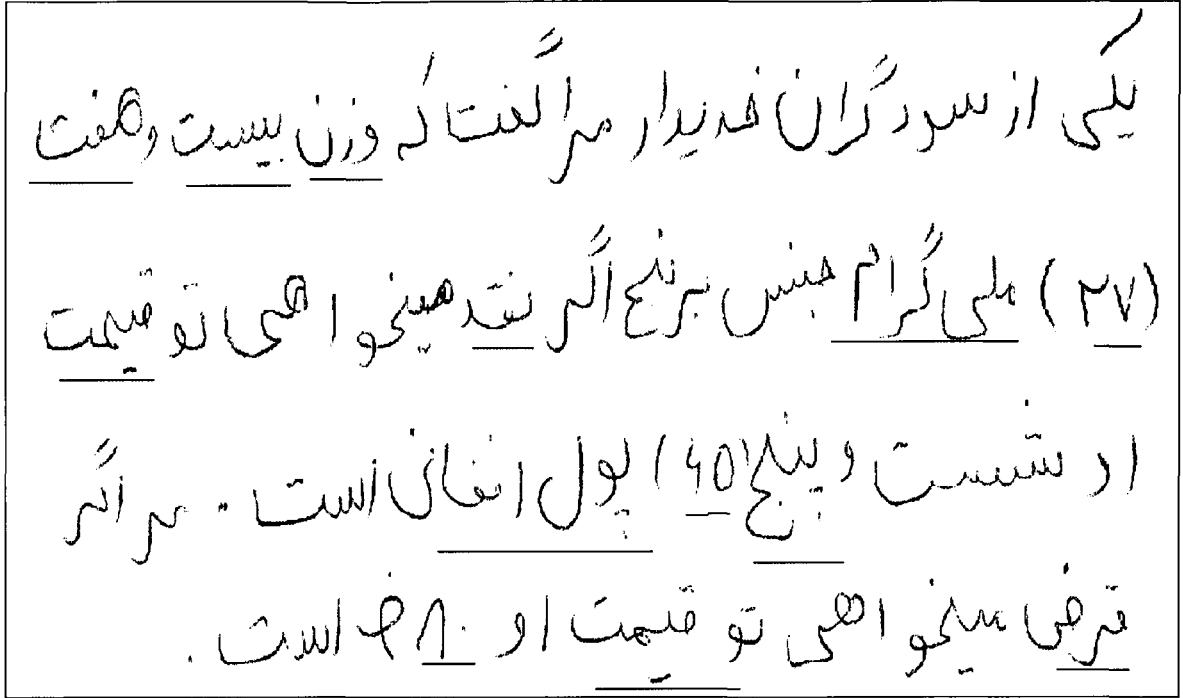 یکی از سودگران خریدار مرا گفت که وزن بیست و هفت
(۲۷) ملی گرام جنس برنج اگر نقد میخواهی تو قیمت
او شست و پنج (۶۵) پول افغانی است. مر اگر
قرض میخواهی تو قیمت او ۸۰ است.